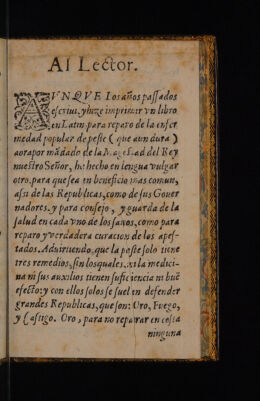 Al Lector.
AVNQVE los años passados
escriui, y hize imprimir vn libro
en Latin para reparo de la enfer
medad popular de peste ( que aun dura )
aora por mãdado de la Magestad del Rey
nuestro Señor, he hecho en lengua vulgar
otro, para que sea en beneficio mas comun,
assi de las Republicas, como de sus Gouer
nadores, y para consejo, y guarda de la
salud en cada vno de los sanos, como para
reparo y verdadera curacion de los apes-
tados. Aduirtiendo, que la peste solo tiene
tres remedios, sin los quales, ni la medici-
na ni sus auxilios tienen suficiencia ni buẽ
efecto: y con ellos solos se suelen defender
grandes Republicas, que son: Oro, Fuego,
y Castigo. Oro, para no reparar en costa
ninguna